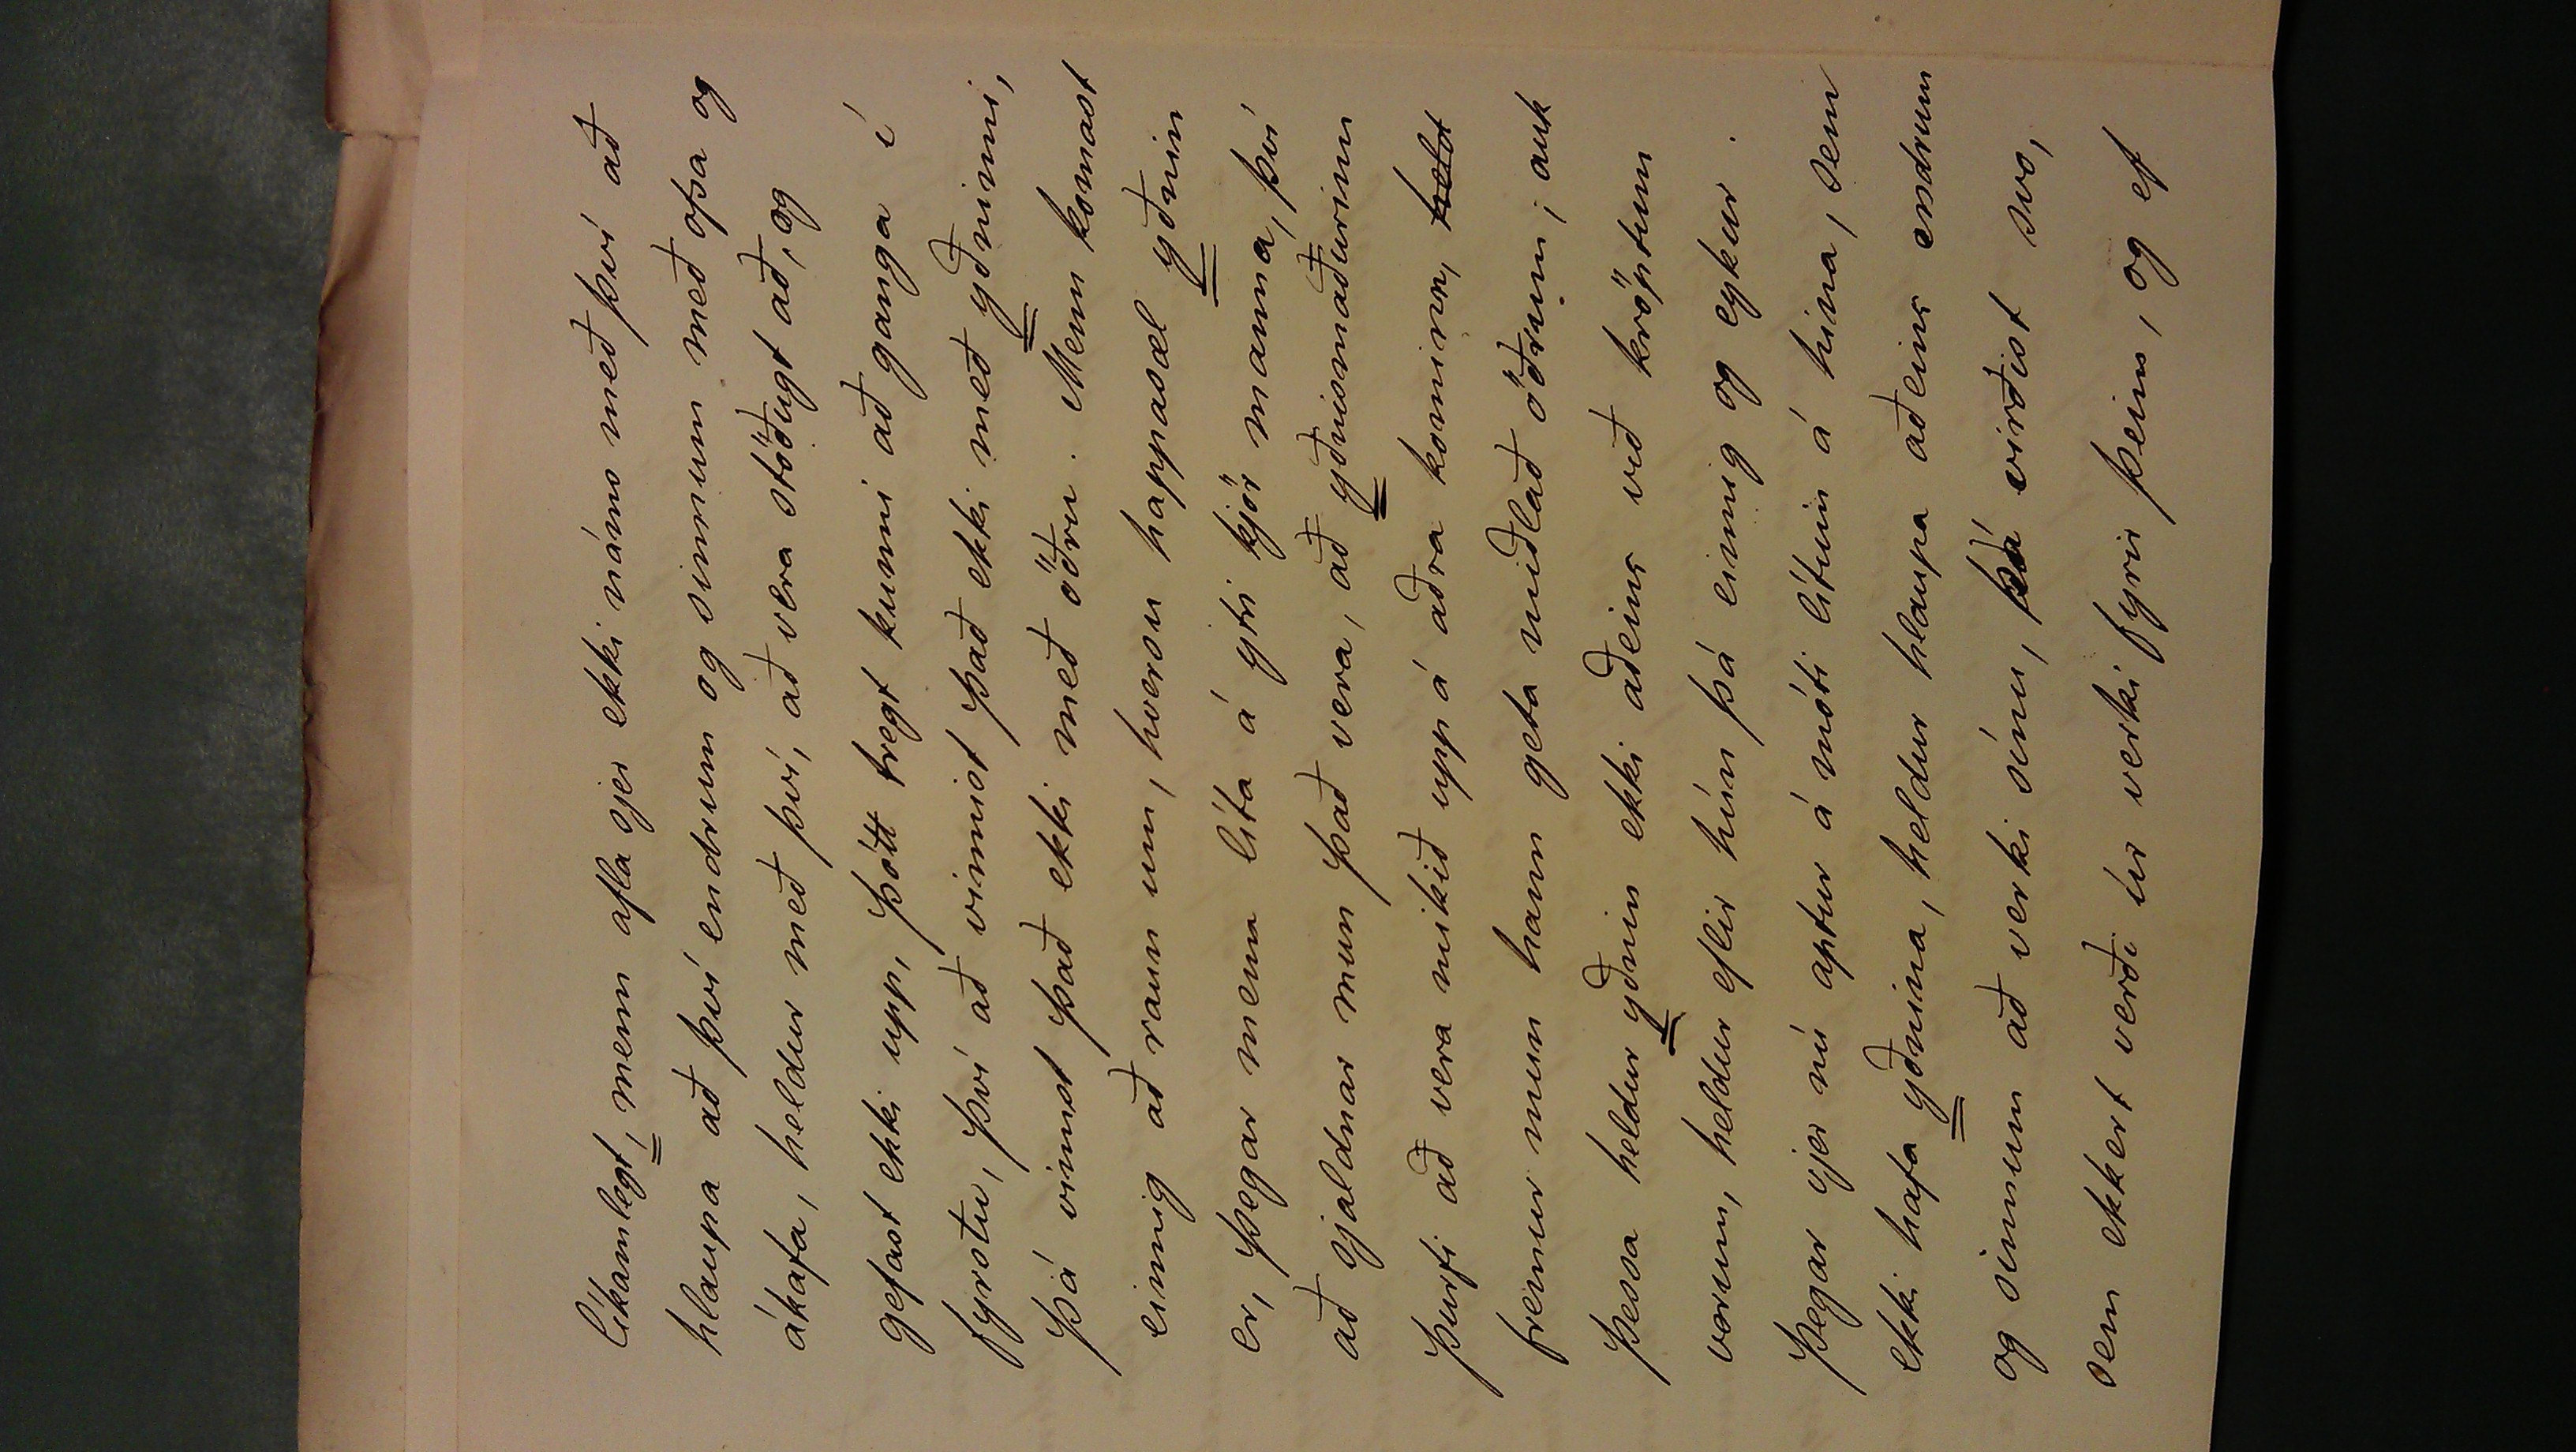 líkamlegt, menn afla sjer ekki náms með því að
hlaupa að því endrum og sinnum með opsa og
ákafa, heldur með því, að vera stöðugt að, og
gefast ekki upp, þótt tregt kunni að ganga í
fyrstu, því að vinnist það ekki með yðninni,
þá vinnst það ekki með öðru. Menn komast
einnig að raun um, hversu happasæl yðnin
er, þegar menn líta á ytri kjör manna, því
að sjaldnar mun það vera, að yðnismaðurinn
þurfi að vera mikið upp á aðra kominn, helst
fremur mun hann geta miðlað öðrum; auk
þessa heldur yðnin ekki aðeins við kröptum
vorum, heldur eflir hún þá einnig og eykur.
Þegar vjer nú aptur á móti lítum á hina, sem
ekki hafa yðnina, heldur hlaupa aðeins endrum
og sinnum að verki sínu, þá virðist svo,
sem ekkert verði úr verki fyrir þeim, og ef